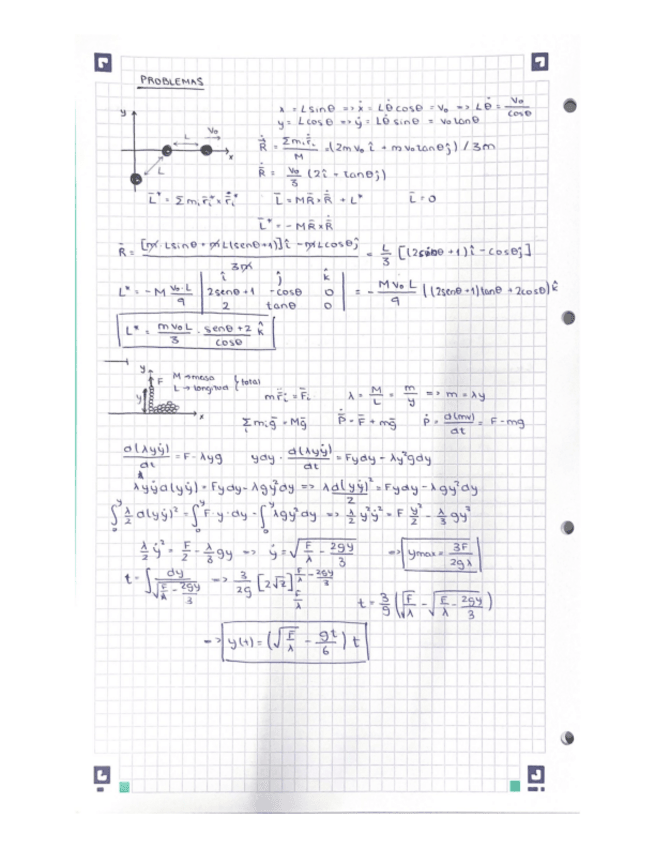 PROBLEMAS
x = L senθ => ẋ = Lθ̇ cosθ = V₀ => Lθ̇ = V₀/cosθ
y = L cosθ => ẏ = Lθ̇ senθ = V₀ tanθ
y
L
V₀
x
L
Ṙ̄ = Σmᵢṙ̄ᵢ/M = (2mV₀ î + mV₀ tanθ ĵ) / 3m
Ṙ̄ = V₀/3 (2î + tanθ ĵ)
L̄* = Σmᵢ r̄ᵢ* × ṙ̄ᵢ* L̄ = MR̄ × Ṙ̄ + L* L̄ = 0
L̄* = -MR̄ × Ṙ̄
R̄ = [(m·L senθ + mL(senθ+1)] î - mL cosθ ĵ / 3m = L/3 [(2senθ + 1) î - cosθ ĵ]
L* = -M V₀·L/9 | î ĵ k̂ ; 2senθ+1 -cosθ 0 ; 2 tanθ 0 | = - M V₀ L/9 ((2senθ+1) tanθ + 2cosθ) k̂
L* = m V₀ L/3 · senθ+2/cosθ k̂
y
F
M → masa
L → longitud } total
y
x
m r̈̄ᵢ = F̄ᵢ λ = M/L = m/y => m = λy
Σmᵢ ḡ = Mḡ Ṗ̄ = F̄ + mḡ Ṗ = d(mv)/dt = F - mg
d(λyẏ)/dt = F - λyg ydy · d(λyẏ)/dt = Fydy - λy²gdy
λyẏ d(yẏ) = Fydy - λgy²dy => λ d(yẏ)²/2 = Fydy - λgy²dy
∫₀ʸ λ/2 d(yẏ)² = ∫₀ʸ F·y·dy - ∫₀ʸ λgy²dy => λ/2 y²ẏ² = F y²/2 - λ/3 gy³
λ/2 ẏ² = F/2 - λ/3 gy => ẏ = √(F/λ - 2gy/3) => ymax = 3F/2gλ
t = ∫ dy/√(F/λ - 2gy/3) => 3/2g [2√z] F/λ - 2gy/3 F/λ
t = 3/g (√(F/λ) - √(F/λ - 2gy/3))
=> y(t) = (√(F/λ) - gt/6) t